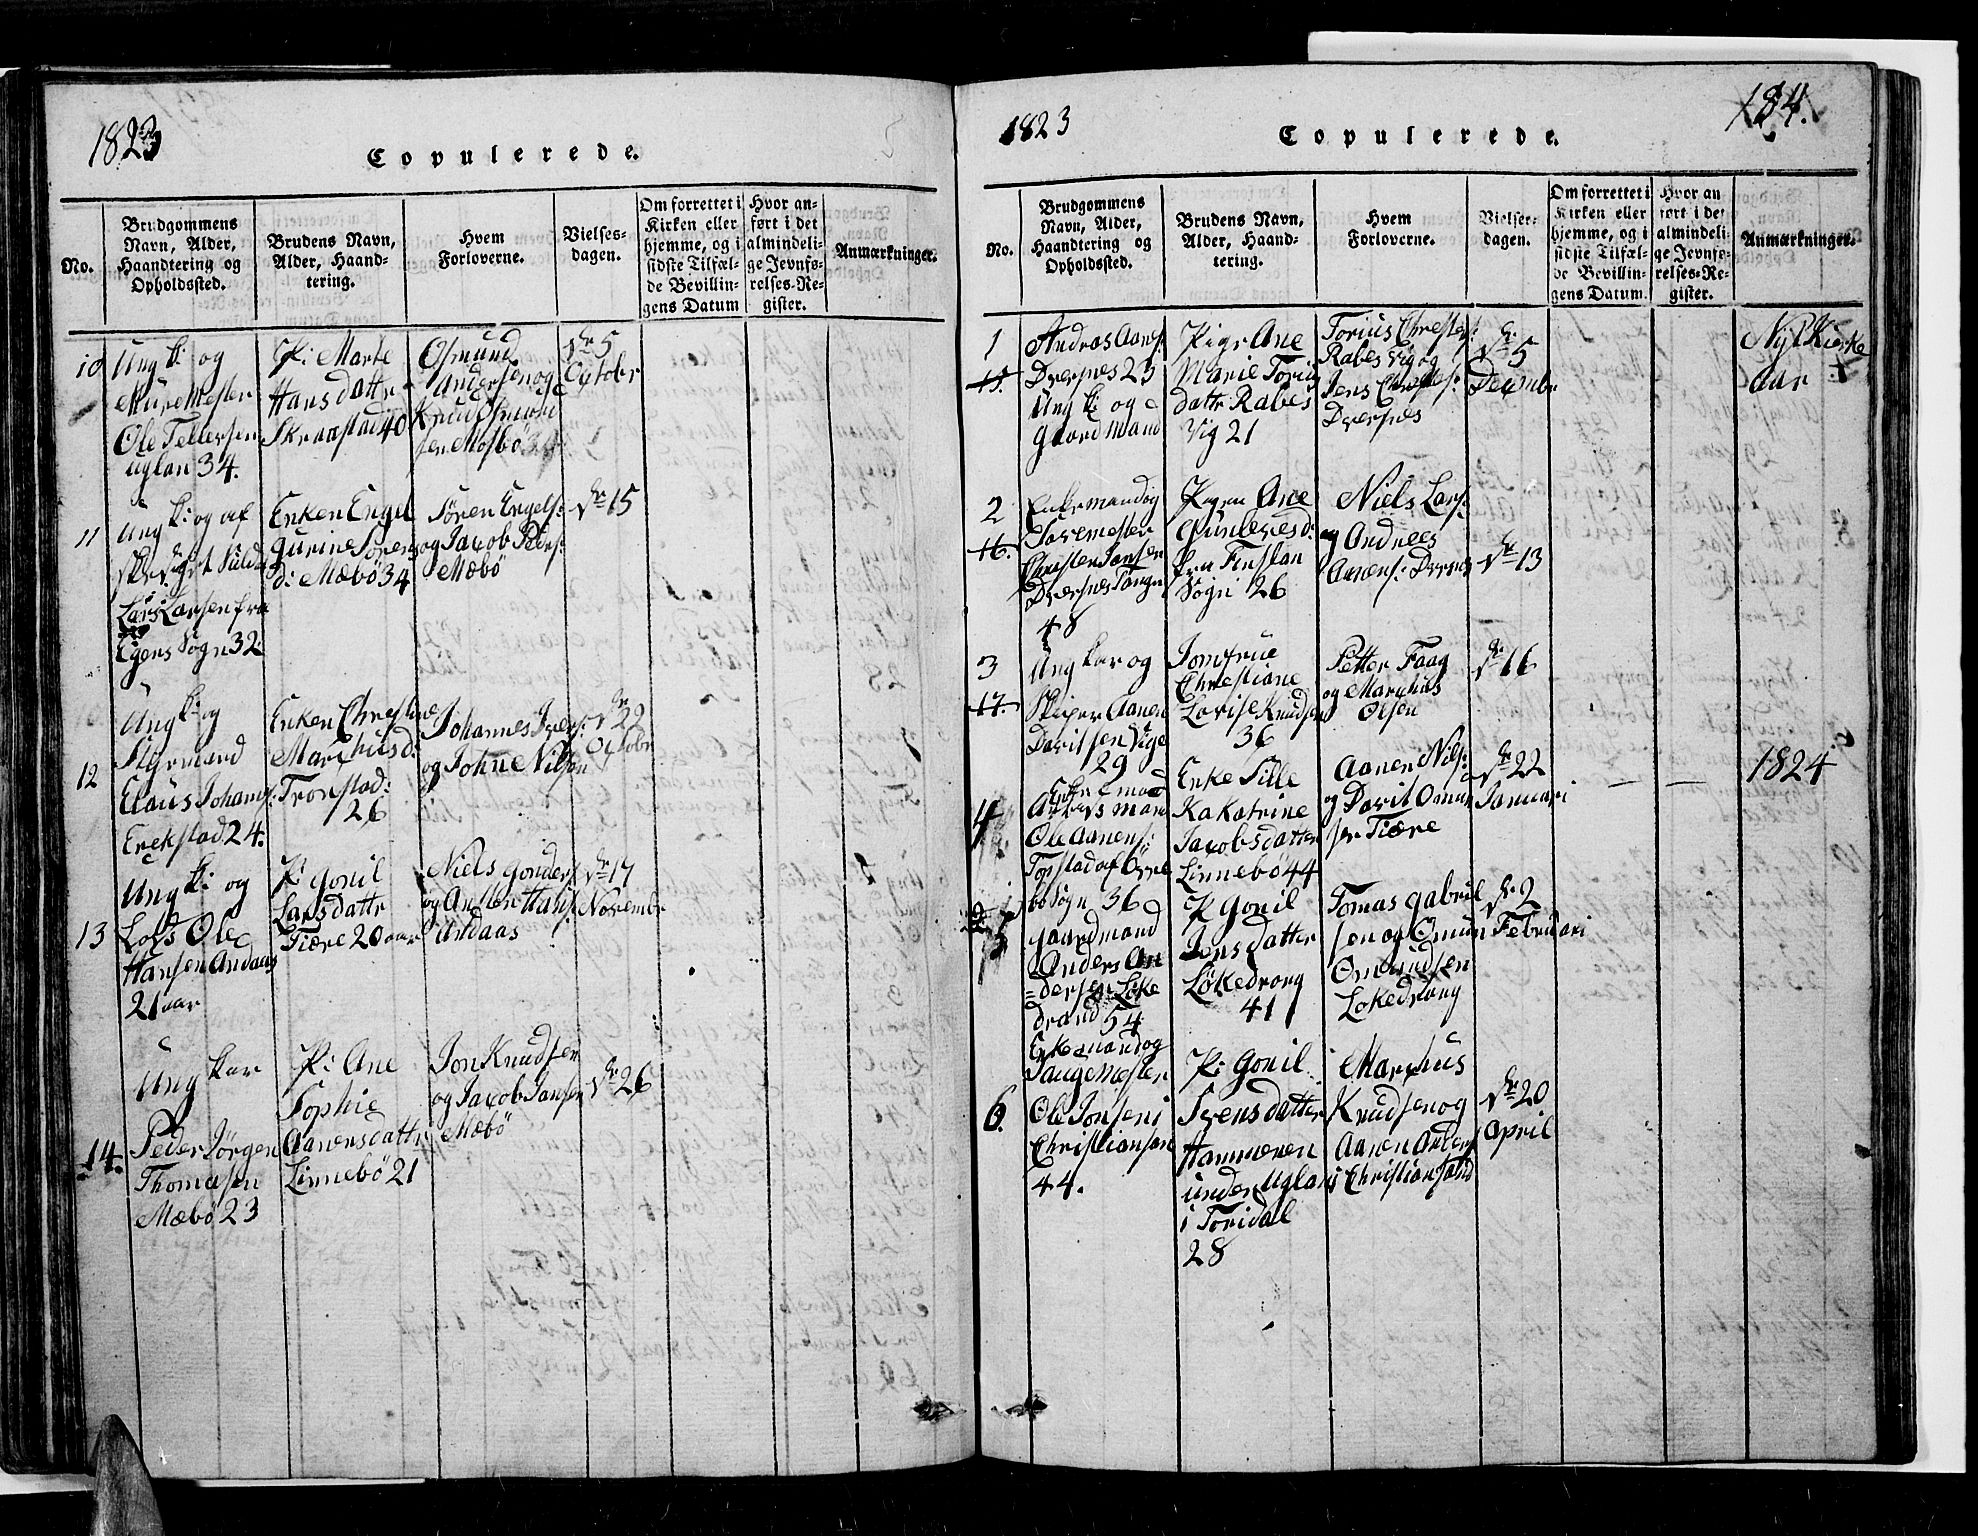 1823
Copulerede.
No.
Brudgommens
Navn, Alder,
Haandtering og
Opholdssted.
Brudens Navn,
Alder, Haand-
tering.
Hvem
Forloverne.
Vielses-
dagen.
Om forrettet i
Kirken eller
hjemme, og i
sidste Tilfæl-
de Bevillin-
gens Datum
Hvor an-
ført i det
almindeli-
ge Jevnfø-
relses-Re-
gister.
Anmærkninger.
10
Ung k: og
Mure Mester
Ole Tellefsen
uglan 34.
Pi: Marte
Hans dattr
Skraastad 40
Osmund
Andersen og
Knud Osmun
sen Mosbö
dr 5
Octobr
11
Ung k: og af
Lars Larsen fra
Egens Sogn 32
Enken Engel
gurine Sörens
d: Mæbö 34
Sören Engels:
og Jacob Peders:
Mæbö
dr 15
12
Ung k: og
Styrmand
Claus Johans:
Erekstad 24.
Enken Christine
Marchus d:
Tronstad:
26
Johannes Ivers:
og Johne Nilsen
dr 22
Octobr
13
Ung k: og
Lods Ole
Hansen Andaas
21 aar
P: gonil
Larsdattr
Fiære 20 aar
Niels gonders
og Ansten Hans
Andaas
dr 17
Novembr
14.
Ung kar
Peder Jörgen
Thomasen
Mæbö 23
Pi: Ane
Sophie
Aanensdattr
Linnebö 21
Jon Knudsen
og Jacob Jansen
Mæbö
dr 26
1823
184.
Copulerede.
No.
Brudgommens
Navn, Alder,
Haandtering og
Opholdssted.
Brudens Navn,
Alder, Haand-
tering.
Hvem
Forloverne.
Vielses-
dagen.
Om forrettet i
Kirken eller
hjemme, og i
sidste Tilfæl-
de Bevillin-
gens Datum.
Hvor an-
ført i det
almindeli-
ge Jevnfø-
relses-Re-
gister.
Anmærkninger.
1
15.
Andras Aans:
Dversnes 23
Ung k: og
gaardmand
Pige Ane
Marie Toris
dattr Rabes
Vig 21
Torius Chrestens:
Rabes Vig og
Jens Chrestens:
Dversnes
dr 5
Decembr
Nyt Kirke
aar
2
16.
Enkemand og
Toremester
Christen Jansen
Dversnes Tangen
48
Pigen Ane
Gunleves d:
fra Finslan
Sogn 26
Niels Lars:
og Andreas
Aanens: Dversnes
dr 13
3
17.
Ung kar og
Skiper Aanen
Davitsen Vige
29
Jomfrue
Christiane
Lovise Knudsen
36
Petter Faag
og Marchus
Olsen
dr 16
4
Enkemand
Ole Aanens:
Topstad af Övre
bö Sogn 36
Enke Sille
Ka Katrine
Jacobsdatter
Linnebö 44
Aanen Nils:
og Davit Omun
sen Fiære
dr 22
Januari
1824
gaardmand
Anders An
=dersen Löke
drand 54
P gonil
Jens datter
Lökedrang
41
Tomas gabril
sen og Omun
Omundsen
Lokedrang
dr 2
Februari
6.
Enkemand og
Tauge Mester
Ole Jonsen i
Christiansan
44.
Pi: gonil
Svens datter
Hammeren
under Uglan
i Toridal
28
Marchus
Knudsen og
Aanen Anders
i Christiansand
dr 20
April